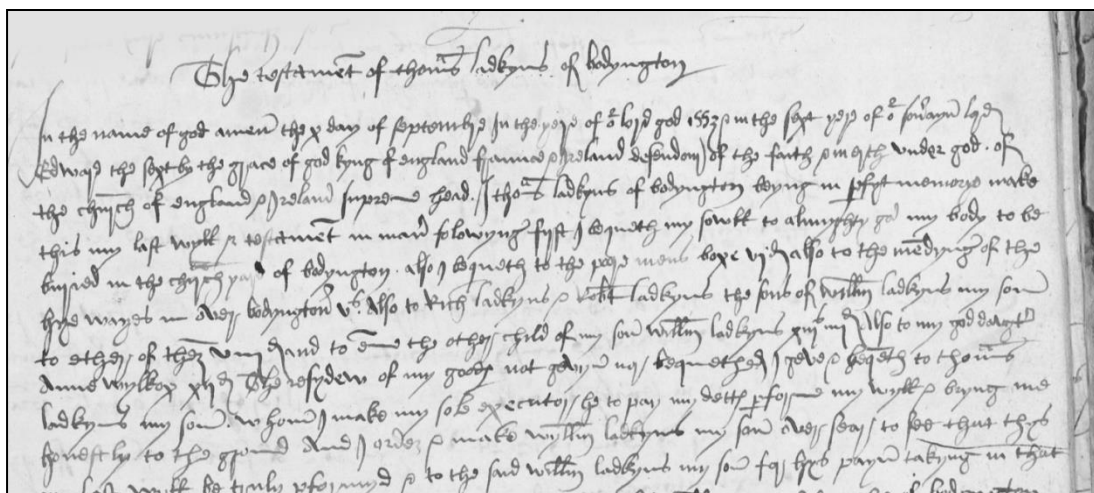 The testament of thom's ladkyns of bodyngton
In the name of god amen the x day of septembre In the yere of or lord god 1552 & in the sext yere of or sov'ayn lord
Edward the sext by the grace of god kyng of england france & Ireland defendor of the faith & in erth under god of
the church of england & Ireland supreme head. I thom's ladkyns of bodyngton beyng in pfyt memorye make
this my last wyll & testament in man' folowyng fyrst I bequeth my sowll to almyghty god my body to be
buried in the church yard of bodyngton. also I bequeth to the pore mens boxe viijd also to the mendyng of the
hye wayes in over bodyngton vs. Also to Rich ladkyns & Robt ladkyns the sons of Willm ladkyns my son
to ether of them and to the other child of my son willm ladkyns Also to my god dought'
Anne wylkox xijd The resydew of my goods not gevyn nor bequethed I geve & bequeth to thom's
ladkyns my son whom I make my sole executor he to pay my detts pforme my wyll & bryng me
honestly to the ground And I order & make wyllm ladkyns my son over sear to see that thys
wyll be truly pformyd & to the said willm ladkyns my son for hys payn takyng in that